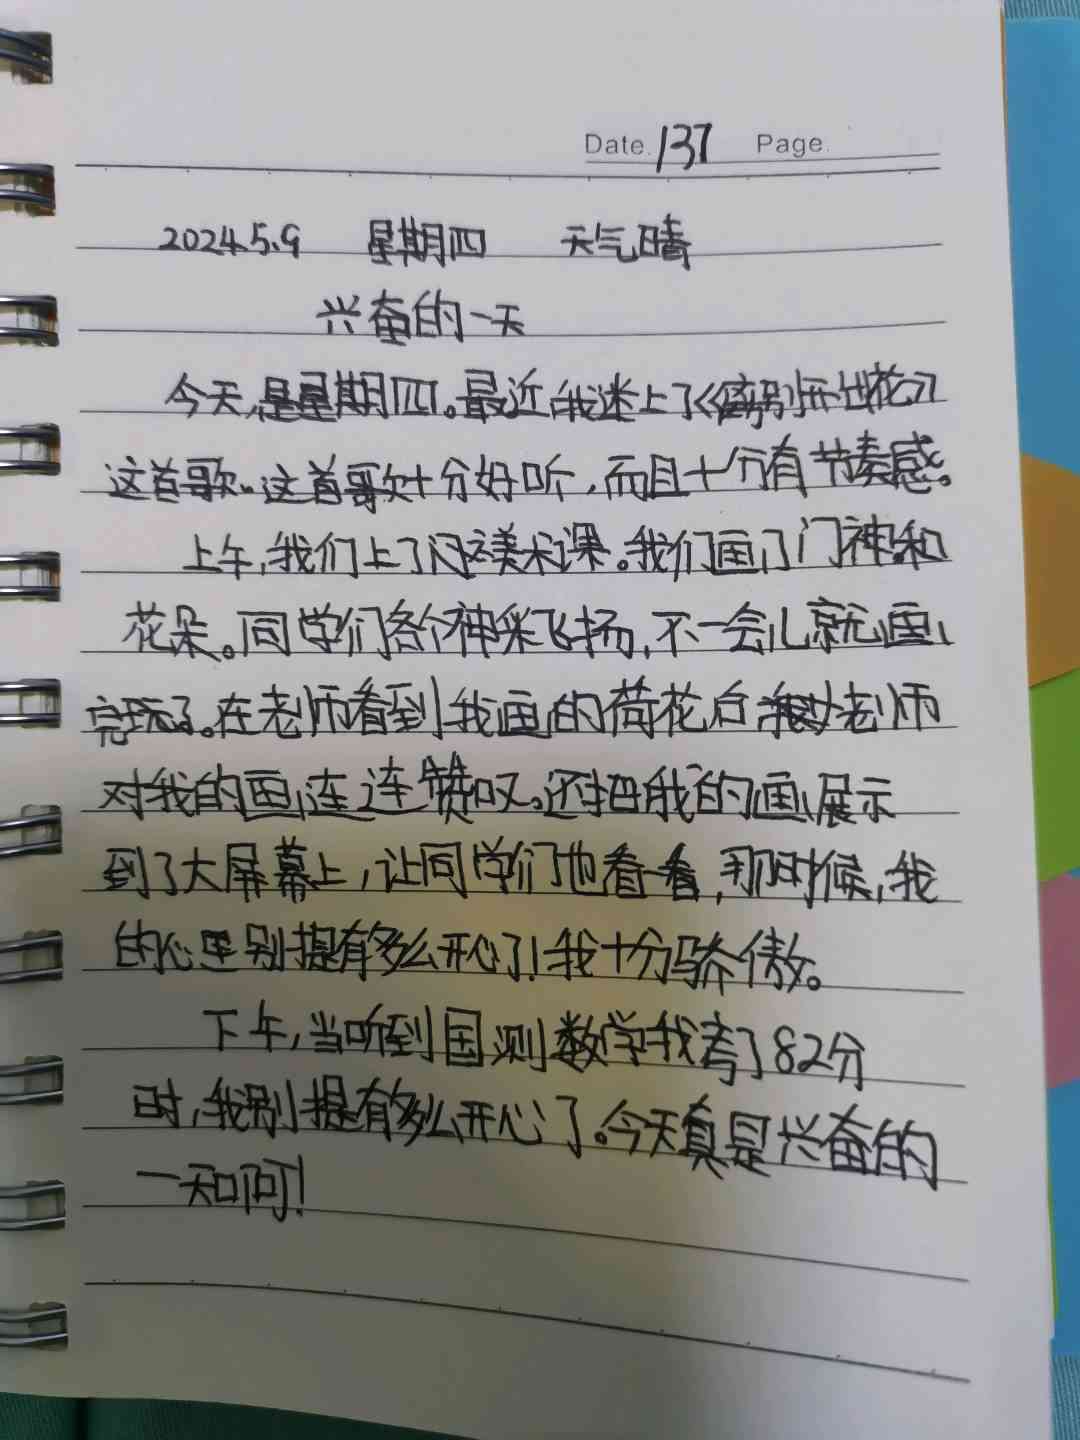 Date. 137 Page.
2024.5.9 星期四 天气晴
兴奋的一天
今天,是星期四。最近我迷上了《离别开出花》
这首歌。这首歌十分好听,而且十分有节奏感。
上午,我们上了美术课。我们画了门神和
花朵。同学们各个神采飞扬,不一会儿就画
完了。在老师看到我画的荷花后,老师
对我的画连连赞叹。还把我的画展示
到了大屏幕上,让同学们也看一看,那时候,我
的心里别提有多么开心了!我十分骄傲。
下午,当听到国测数学我考了82分
时,我别提有多么开心了。今天真是兴奋的
一天啊!